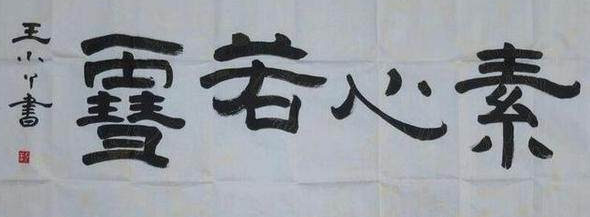 素心若雪
王小書